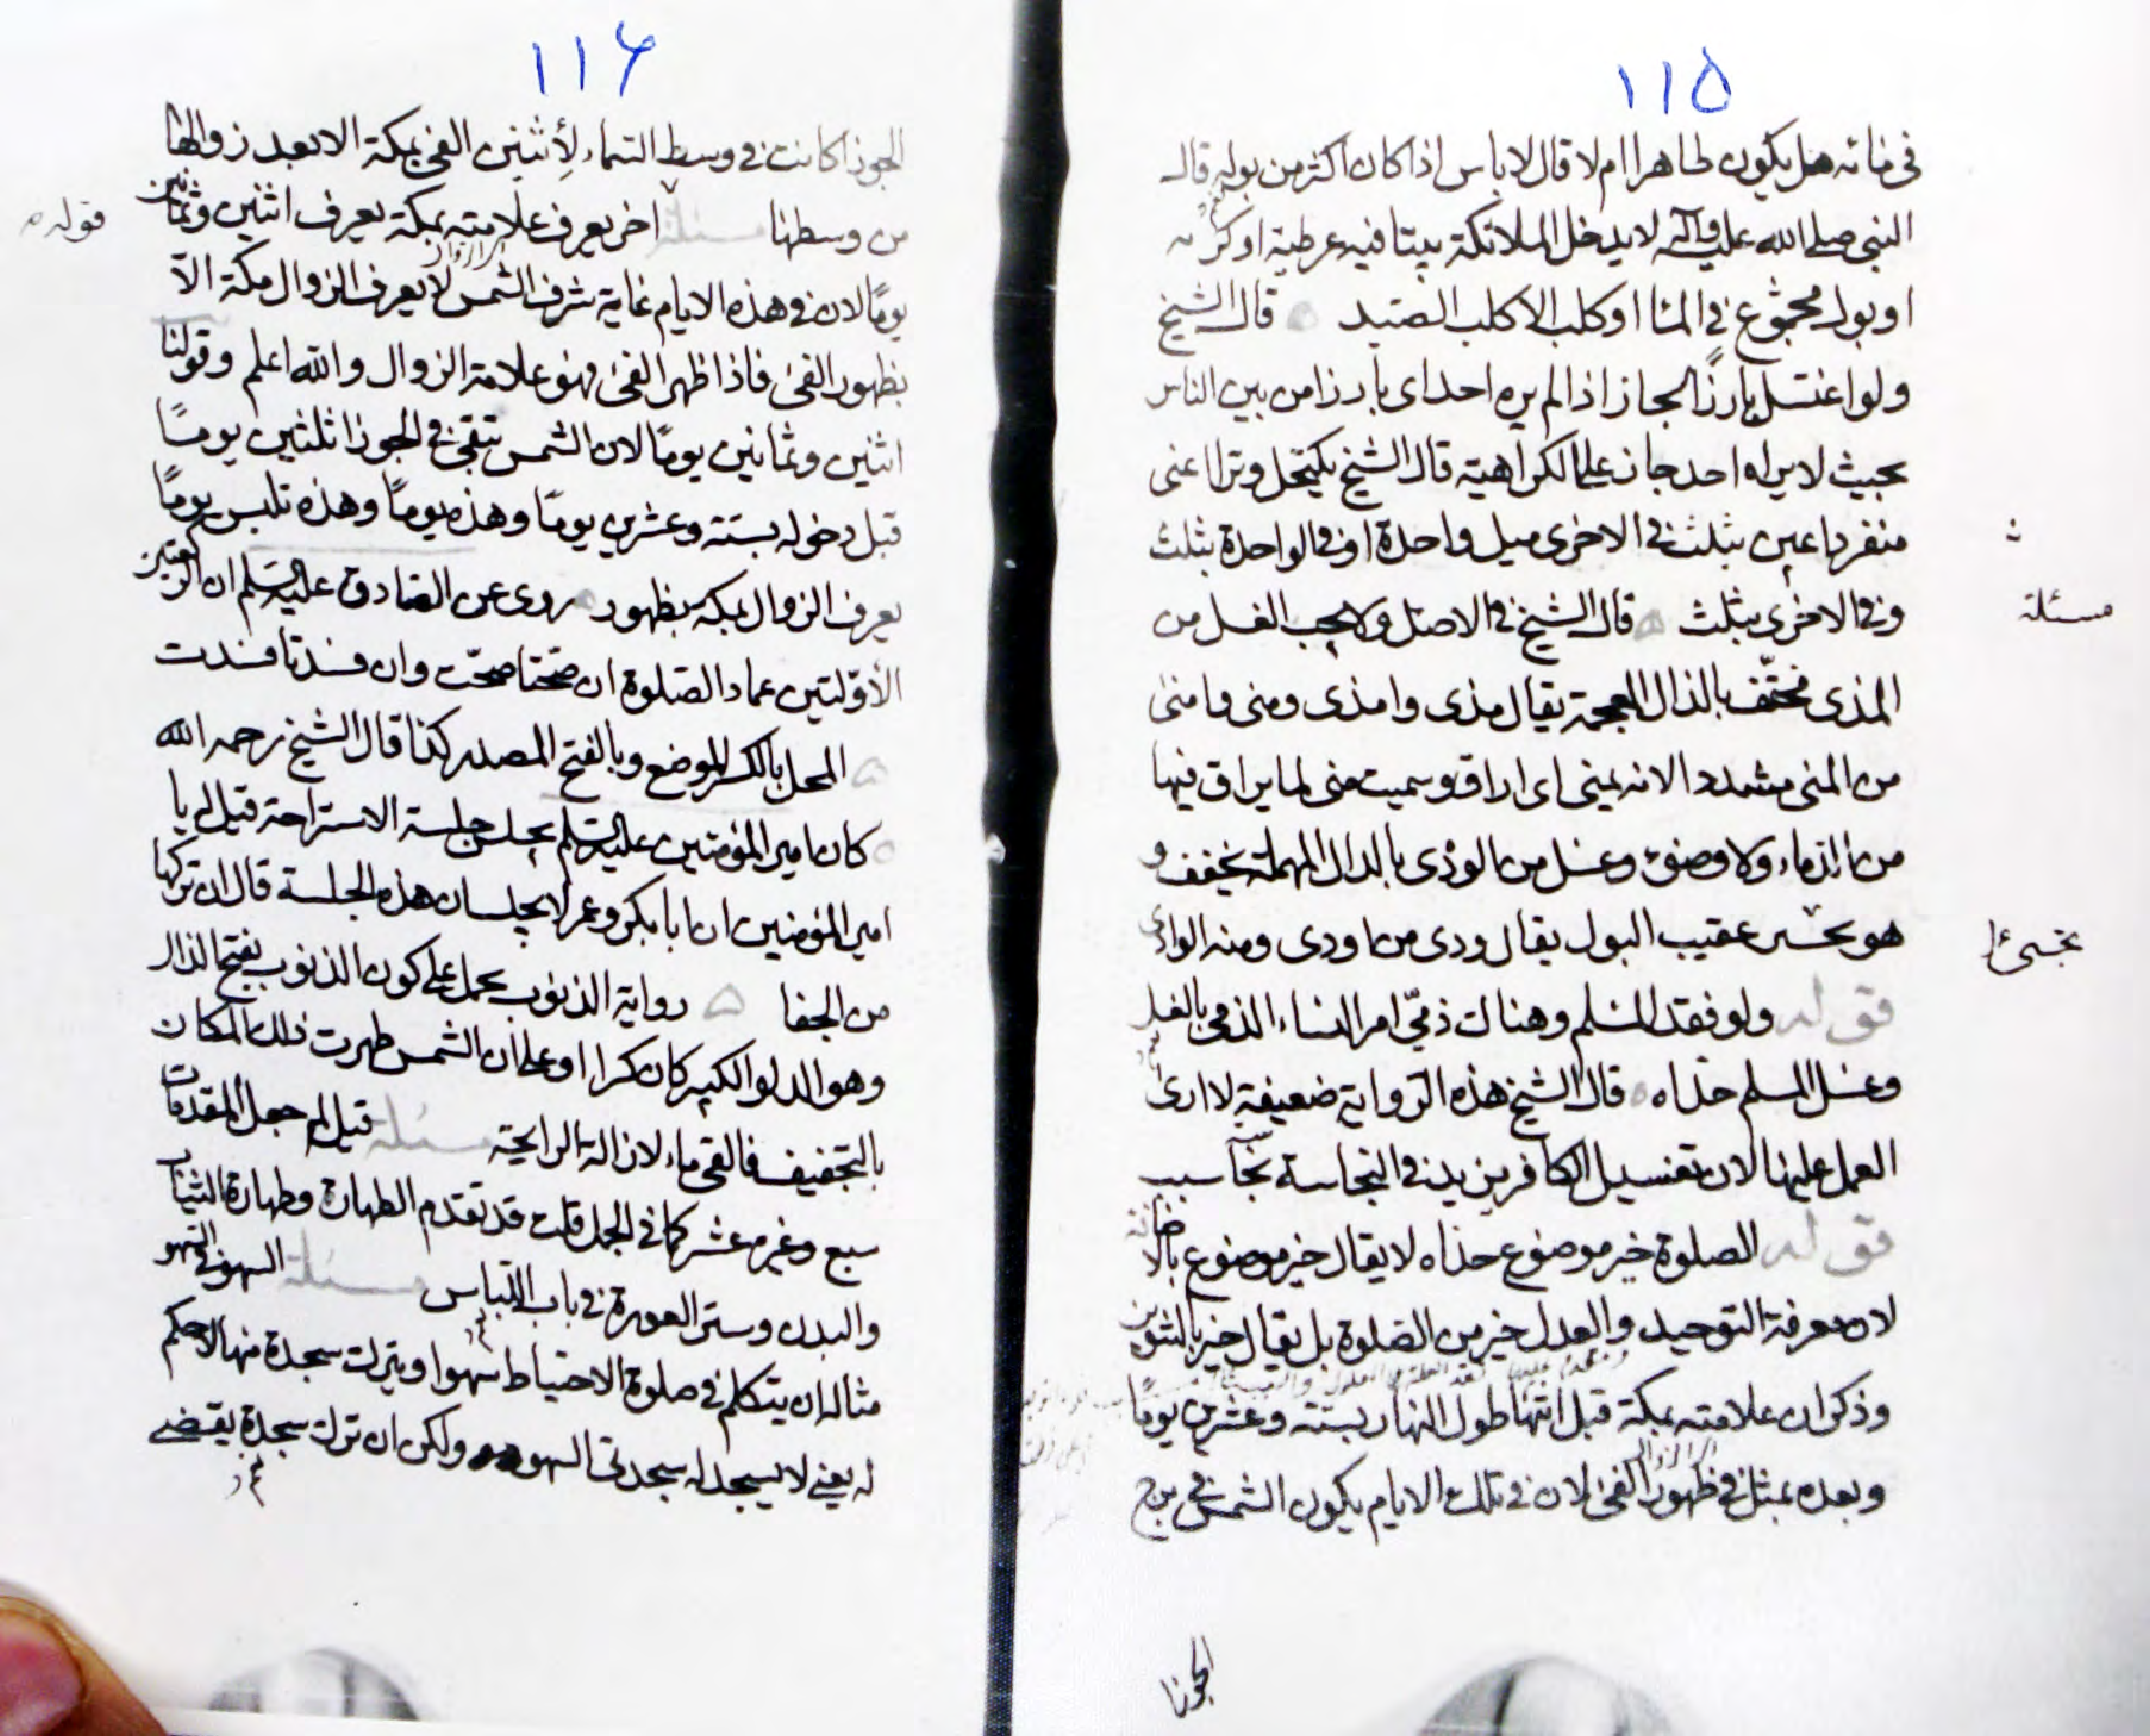 ١١۵
فی مائه هل یکون طاهرا ام لا قال لا باس اذا کان اکثر من بوله قال
النبی صلی الله علیه وآله لا یدخل الملائکة بیتا فیه عرطبة او
او بول مجموع فی انا او کلب الا کلب الصید قال الشیخ
ولو اغتسل بارزا لجاز اذا لم یره احد ای بارزا من بین الناس
بحیث لا یراه احد جاز علی الکراهیة قال الشیخ یکتحل وترا اعنی
منفردا عین بثلث فی الاخری میل واحدة او فی الواحدة بثلث
وفی الاخری بثلث قال الشیخ فی الاصل ولا یجب الغسل من
مسئلة
المذی مخفّف بالذال المعجمة یقال مذی وامذی ومنی وامنی
من المنی مشددا لانه یمنی ای اراق وسمیت منی لما یراق فیها
من الدماء ولا وضوء وغسل من الودی بالدال المهملة یخفف و
هو یخرج عقیب البول یقال ودی من اودی ومنه الوادی
قوله ولو فقد المسلم وهناک ذمّی امر النساء الذمی بالغسل
وغسل المسلم حذاه قال الشیخ هذه الروایة ضعیفة لا اری
العمل علیها لان تغسیل الکافر یزید فی النجاسة نجاسة
قوله الصلوة خیر موضوع حذاه لا یقال خیر موضوع بالاضافة
لان معرفة التوحید والعدل خیر من الصلوة بل یقال خیر بالتنوین
وذکر ان علامته بمکة قبل انتها طول النهار بستة وعشرین یومًا
وبعده بمثل فی ظهور الفئ لان فی تلک الایام یکون الشمس فی برج
الجوزا
١١۶
الجوزا کانت فی وسط السماء الفئ بمکة الا بعد زوالها
من وسطها مسئلة اخر یعرف علامته بمکة یعرف اثنین وثمانین
قوله
یومًا لان فی هذه الایام غایة شرف الشمس لا یعرف الزوال مکة الّا
بظهور الفئ فاذا ظهر الفئ فهو علامة الزوال والله اعلم وقولنا
اثنین وثمانین یومًا لان الشمس تبقی فی الجوزا ثلثین یومًا
قبل دخوله بستة وعشرین یومًا وهذه یومًا وهذه یومًا
یعرف الزوال بمکة بظهور روی عن الصادق علیه السلم ان الرکعتین
الأوّلتین عماد الصلوة ان صحّتا صحّت وان فسدتا فسدت
المحل بالکسر الموضع وبالفتح المصدر کذا قال الشیخ رحمه الله
کان امیر المؤمنین علیه السلم یجلس جلسة الاستراحة قیل له یا
امیر المؤمنین ان ابا بکر وعمر لا یجلسان هذه الجلسة قال ان ترکها
من الجفا روایة الذنوب یحمل علی کون الذنوب بفتح الذال
وهو الدلو الکبیر کان کرا او علی أن الشمس طهرت ذلک المکان
بالتجفیف فالقی ماء لازالة الرایحة مسئلة قیل لم جعل المقدمات
سبع وغیره عشر کما فی الجمل قلت قد تقدم الطهارة وطهارة الثیاب
والبدن وستر العورة فی باب اللباس مسئلة السهو فی السهو
مثاله ان یتکلم فی صلوة الاحتیاط سهوا او یترک سجدة منها لا حکم
له یعنی لا یسجد له سجدتی السهو ولکن ان ترک سجدة یقضی